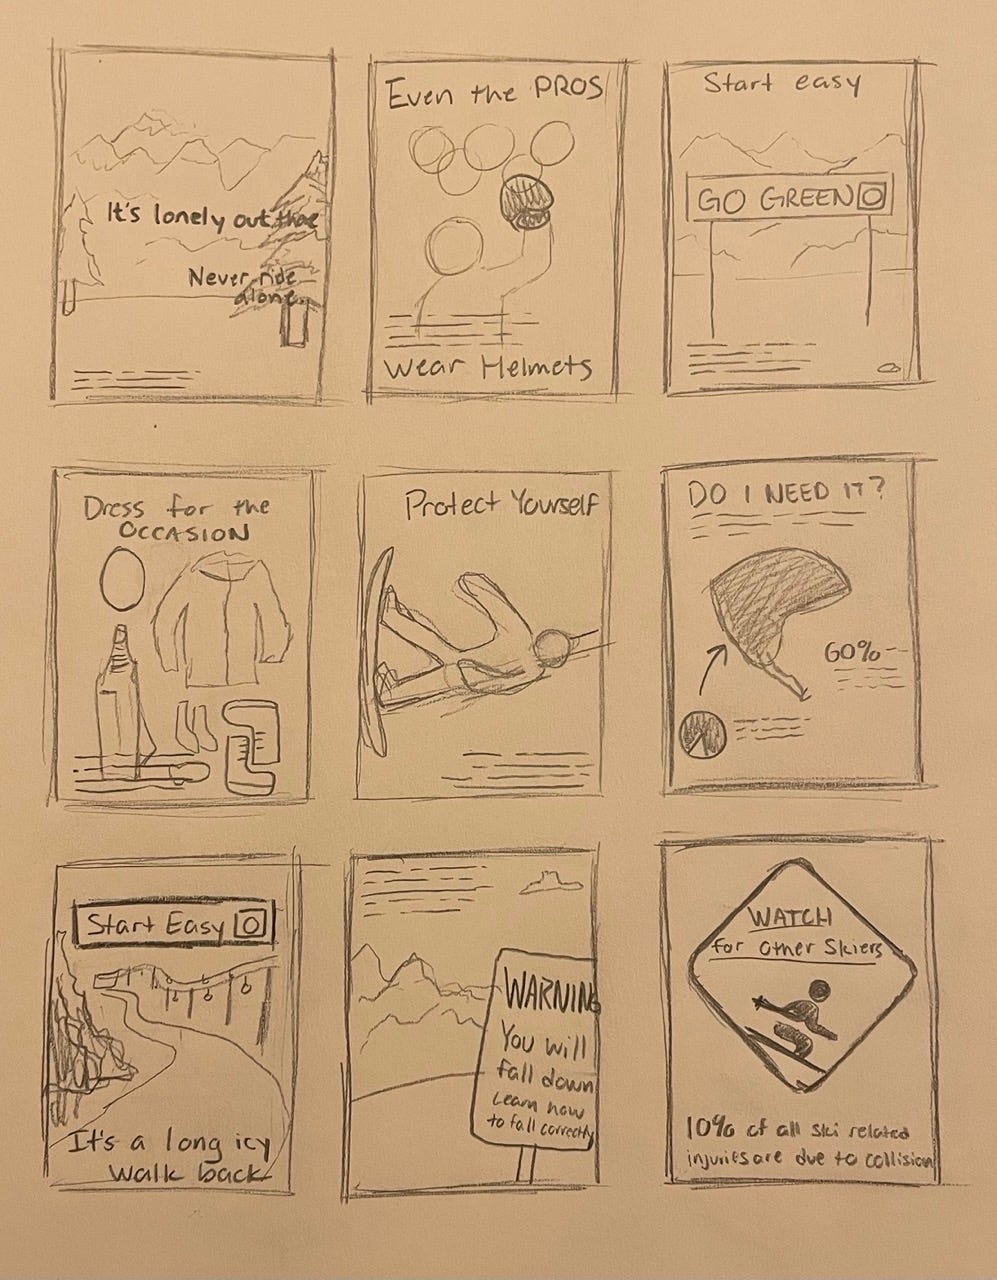 It's lonely out there
Never ride
alone.
Even the PROS
Wear Helmets
Start easy
GO GREEN
Dress for the
OCCASION
Protect Yourself
DO I NEED IT?
60%
Start Easy
It's a long icy
walk back
WARNING
You will
fall down
Learn how
to fall correctly
WATCH
for other skiers
10% of all ski related
injuries are due to collision